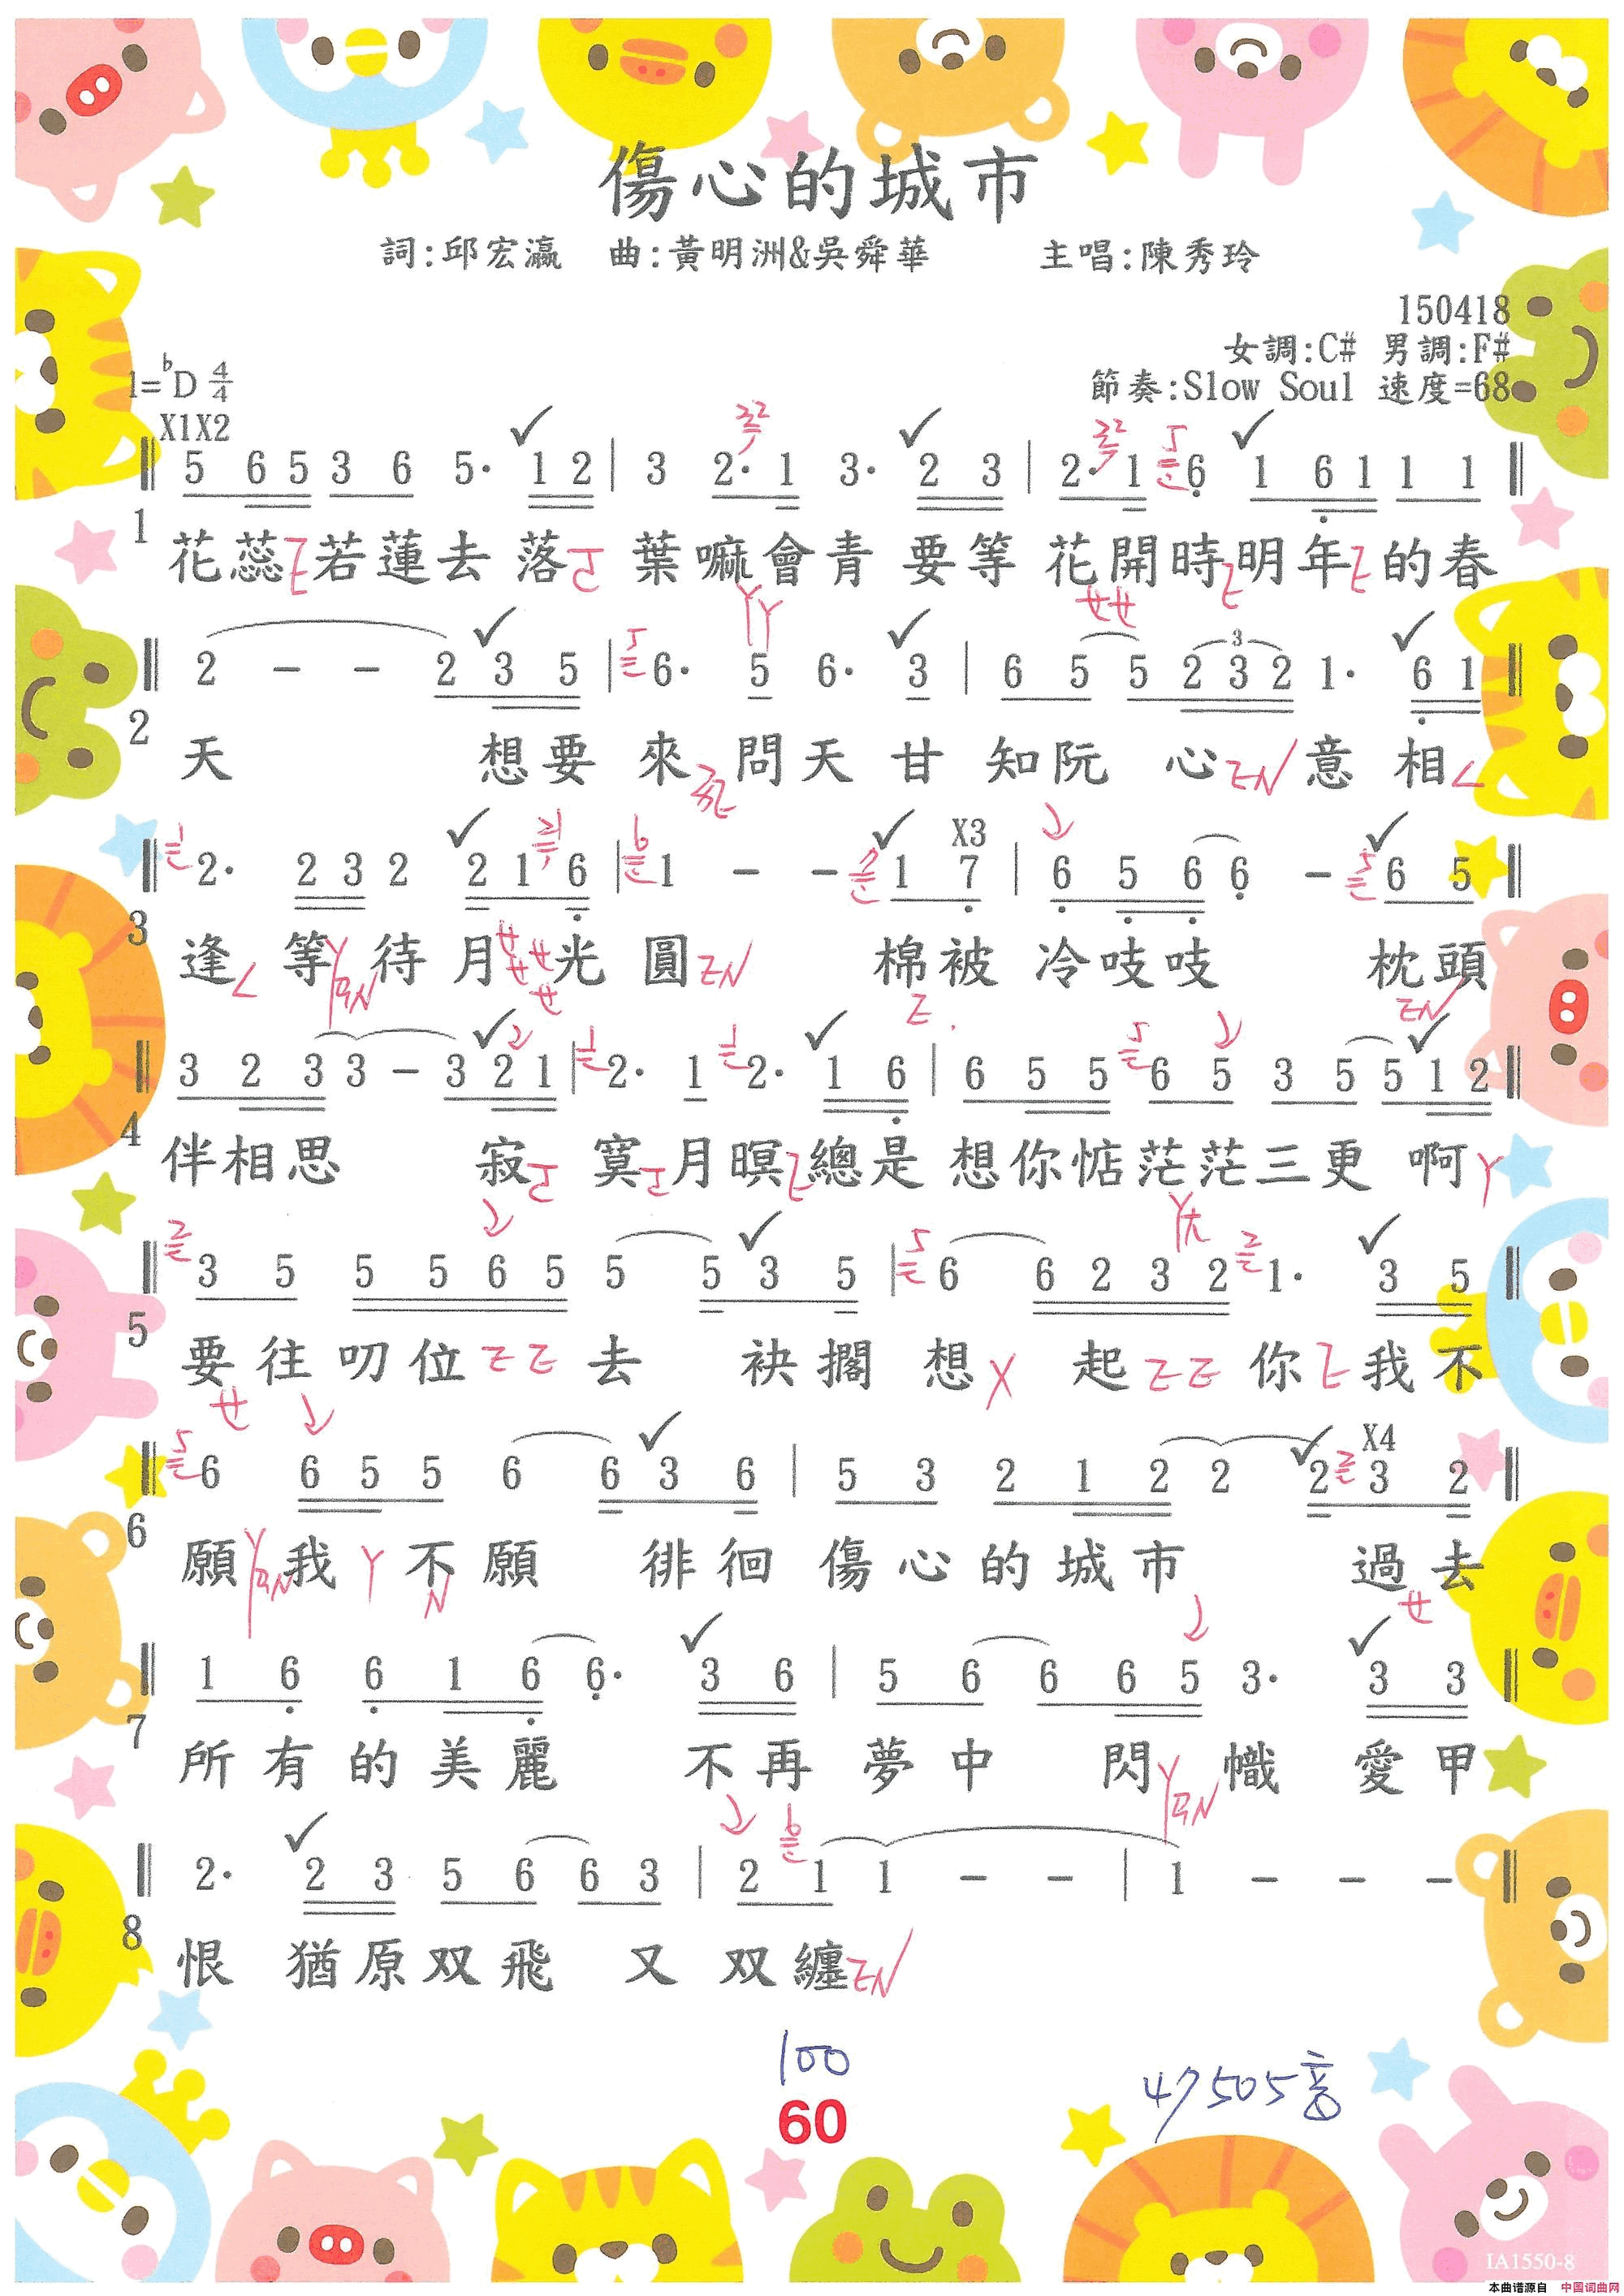 傷心的城市
詞:邱宏瀛 曲:黃明洲&吳舜華 主唱:陳秀玲
150418
女調:C# 男調:F#
1=♭D 4/4 節奏:Slow Soul 速度=68
X1X2
5 6 5 3 6 5· 1 2 | 3 2· 1 3· 2 3 | 2· 1 6 1 6 1 1 1
1 花蕊若蓮去 落 葉嘛會青 要等 花開時明年的春
2 - - 2 3 5 | 6· 5 6· 3 | 6 5 5 2 3 2 1· 6 1
2 天 想要 來 問天 甘 知阮 心 意 相
X3
2· 2 3 2 2 1 6 | 1 - - 1 7 | 6 5 6 6 - 6 5
3 逢 等 待 月 光 圓 棉被 冷吱吱 枕頭
3 2 3 3 - 3 2 1 | 2· 1 2· 1 6 | 6 5 5 6 5 3 5 5 1 2
4 伴相思 寂 寞 月暝 總是 想你惦茫茫三更 啊
3 5 5 5 6 5 5 5 3 5 | 6 6 2 3 2 1· 3 5
5 要往叨位 去 袂擱 想 起 你 我不
X4
6 6 5 5 6 6 3 6 | 5 3 2 1 2 2 2 3 2
6 願 我 不願 徘徊 傷心的城市 過去
1 6 6 1 6 6· 3 6 | 5 6 6 6 5 3· 3 3
7 所有的美麗 不再 夢中 閃 幟 愛甲
2· 2 3 5 6 6 3 | 2 1 1 - - | 1 - - -
8 恨 猶原双飛 又 双纏
100
60
47505音
IA1550-8
本曲谱源自 中国词曲网